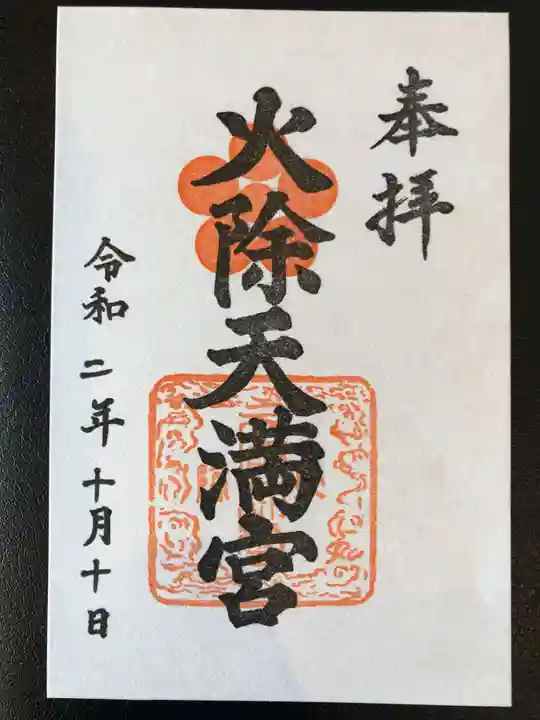 奉拝
火除天満宮
令和二年十月十日